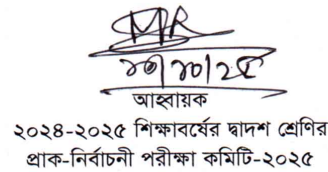 আহ্বায়ক
২০২৪-২০২৫ শিক্ষাবর্ষের দ্বাদশ শ্রেণির
প্রাক-নির্বাচনী পরীক্ষা কমিটি-২০২৫